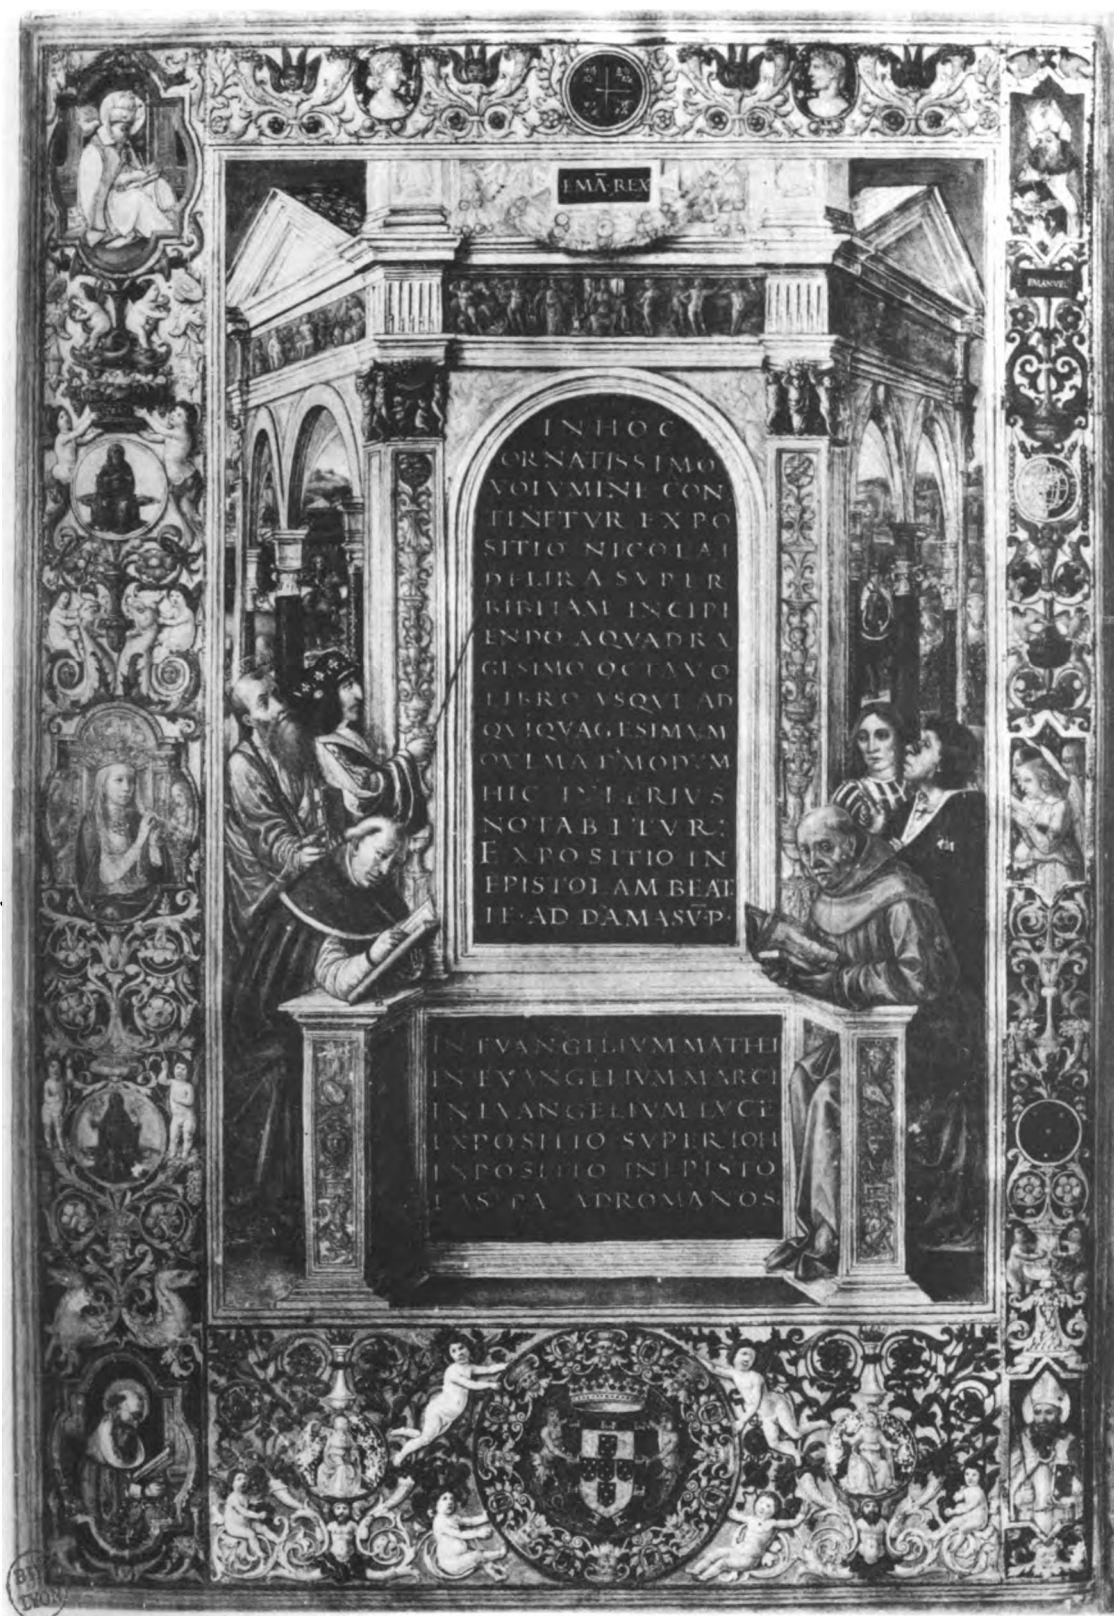 EMA̅·REX
EMANVEL
IN HOC
ORNATISSIMO
VOLVMINE CON
TINETVR EXPO
SITIO NICOLAI
DELIRA SVPER
BIBLIAM INCIPI
ENDO AQVADRA
GESIMO OCTAVO
LIBRO VSQVE AD
QVIQVAGESIMVM
HIC INFERIVS
NOTABITVR:
EXPOSITIO IN
EPISTOLAM BEAT
IE·AD DAMASV̅·P·
IN EVANGELIVM MATHEI
IN EVANGELIVM MARCI
IN EVANGELIVM LVCE
EXPOSITIO SVPER IOH
EXPOSITIO IN EPISTO
LAS PA ADROMANOS